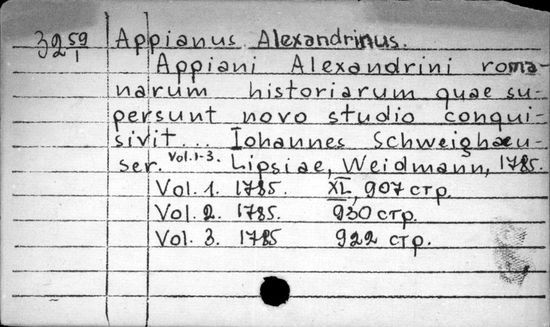 32 59/1 Appianus Alexandrinus.
Appiani Alexandrini roma-
narum historiarum quae su-
persunt novo studio conqui-
sivit... Iohannes Schweighaeu-
ser. Vol. 1-3. Lipsiae, Weidmann, 1785.
Vol. 1. 1785. XL, 907 стр.
Vol. 2. 1785. 930 стр.
Vol. 3. 1785 922 стр.